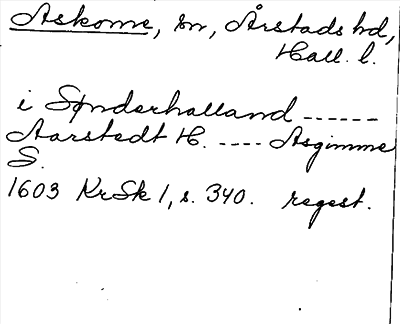 Askome, sn, Årstads hd,
Hall. l.
i Sønderhalland ------
Aarstedt H. ---- Asgimme
S.
1603 KrSk 1, s. 340. regest.